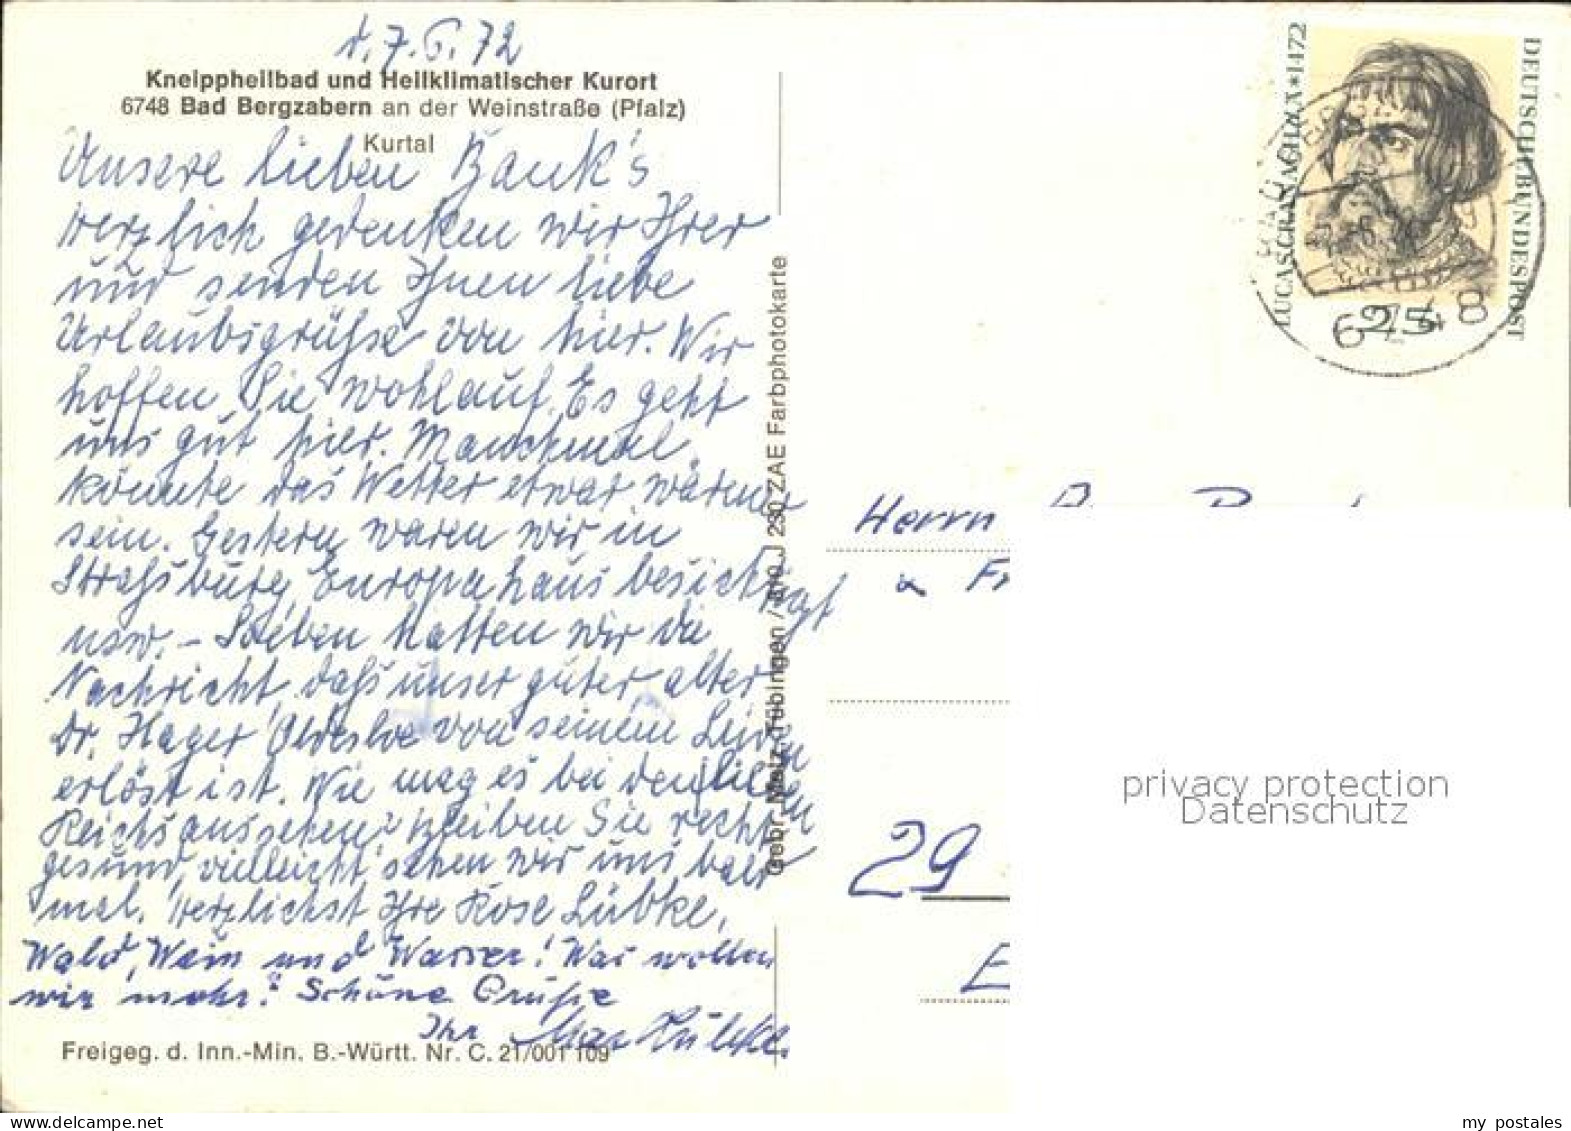 d. 7. 6. 72
Kneippheilbad und Heilklimatischer Kurort
6748 Bad Bergzabern an der Weinstraße (Pfalz)
Kurtal
Unsere lieben Bank's
Herzlich gedenken wir Ihrer
und senden Ihnen liebe
Urlaubsgrüße von hier. Wir
hoffen Sie wohlauf. Es geht
uns gut hier. Manchmal
könnte das Wetter etwas wärmer
sein. Gestern waren wir in
Straßburg, Europahaus besichtigt
usw. - Soeben hatten wir die
Nachricht, daß unser guter, alter
Dr. Hager Oldesloe von seinem Leiden
erlöst ist. Wie mag es bei den lieben
Reichs aussehen? Bleiben Sie recht
gesund, vielleicht sehen wir uns bald
mal. Herzlichst Ihre Rose Lübke,
Wald, Wein und Wasser! Was wollen
wir mehr? Schöne Grüße
Ihr Max Lübke.
Freigeg. d. Inn.-Min. B.-Württ. Nr. C. 21/001 109
Gebr. Metz, Tübingen / 230 ZAE Farbphotokarte
LUCAS CRANACH D.Ä. *1472
DEUTSCHE BUNDESPOST
25
6748
Herrn
& Fr
29
E
privacy protection
Datenschutz
my postales